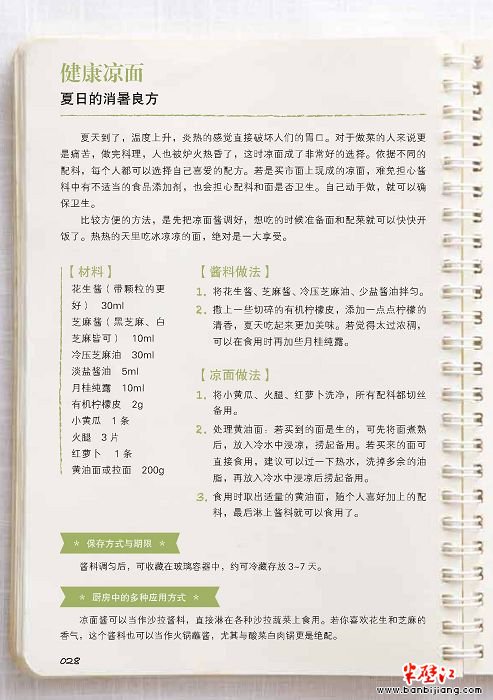 健康凉面
夏日的消暑良方
夏天到了，温度上升，炎热的感觉直接破坏人们的胃口。对于做菜的人来说更
是痛苦，做完料理，人也被炉火热昏了，这时凉面成了非常好的选择。依据不同的
配料，每个人都可以选择自己喜爱的配方。若是买市面上现成的凉面，难免担心酱
料中有不适当的食品添加剂，也会担心配料和面是否卫生。自己动手做，就可以确
保卫生。
比较方便的方法，是先把凉面酱调好，想吃的时候准备面和配菜就可以快快开
饭了。热热的天里吃冰凉凉的面，绝对是一大享受。
【材料】
花生酱（带颗粒的更
好） 30ml
芝麻酱（黑芝麻、白
芝麻皆可） 10ml
冷压芝麻油 30ml
淡盐酱油 5ml
月桂纯露 10ml
有机柠檬皮 2g
小黄瓜 1条
火腿 3片
红萝卜 1条
黄油面或拉面 200g
【酱料做法】
1. 将花生酱、芝麻酱、冷压芝麻油、少盐酱油拌匀。
2. 撒上一些切碎的有机柠檬皮，添加一点点柠檬的
清香，夏天吃起来更加美味。若觉得太过浓稠，
可以在食用时再加些月桂纯露。
【凉面做法】
1. 将小黄瓜、火腿、红萝卜洗净，所有配料都切丝
备用。
2. 处理黄油面：若买到的面是生的，可先将面煮熟
后，放入冷水中浸凉，捞起备用。若买来的面可
直接食用，建议可以过一下热水，洗掉多余的油
脂，再放入冷水中浸凉后捞起备用。
3. 食用时取出适量的黄油面，随个人喜好加上的配
料，最后淋上酱料就可以食用了。
* 保存方式与期限 *
酱料调匀后，可收藏在玻璃容器中，约可冷藏存放3~7天。
* 厨房中的多种应用方式 *
凉面酱可以当作沙拉酱料，直接淋在各种沙拉蔬菜上食用。若你喜欢花生和芝麻的
香气，这个酱料也可以当作火锅蘸酱，尤其与酸菜白肉锅更是绝配。
028
半壁江
www.banbijiang.com